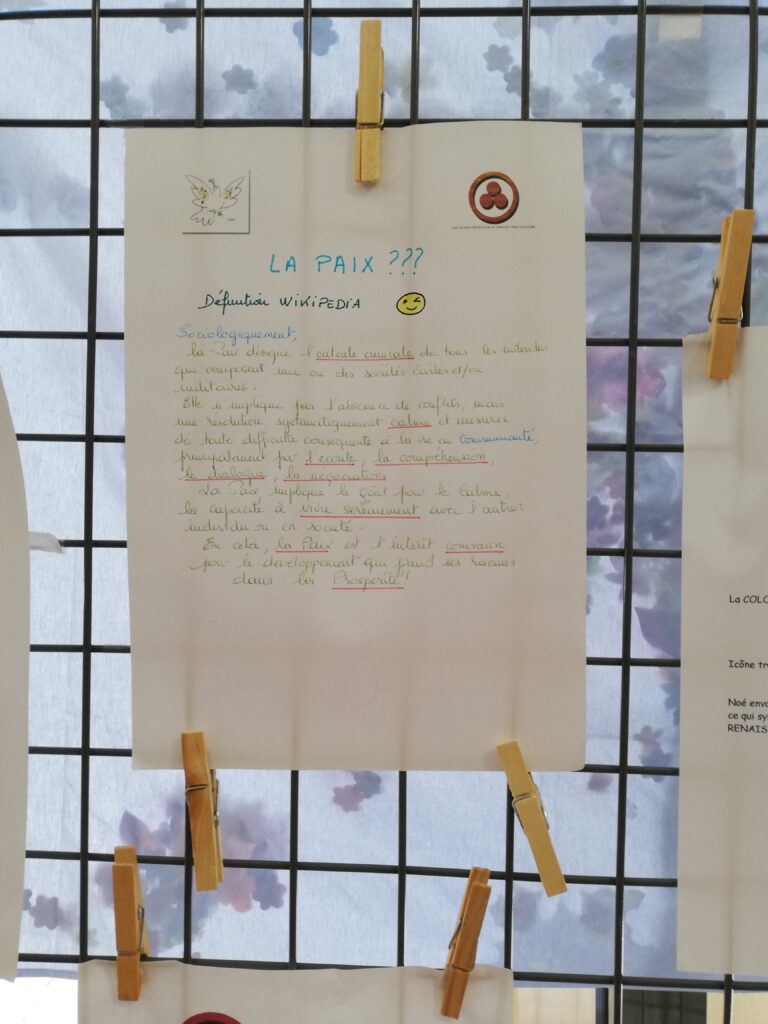 LA PAIX ???
Définition WIKIPEDIA
Sociologiquement,
la Paix désigne l'entente amicale de tous les individus
qui composent une ou des sociétés civiles et/ou
militaires.
Elle n'implique pas l'absence de conflits, mais
une résolution systématiquement calme et mesurée
de toute difficulté conséquente à la vie en communauté,
principalement par l'écoute, la compréhension,
le dialogue, la négociation.
La Paix implique le goût pour le Calme,
la capacité à vivre sereinement avec l'autre:
individu ou en société.
En cela, la Paix est l'intérêt commun
pour le développement qui prend ses racines
dans la Prospérité!
La COLO
Icône tr
Noé envo
ce qui sy
RENAIS